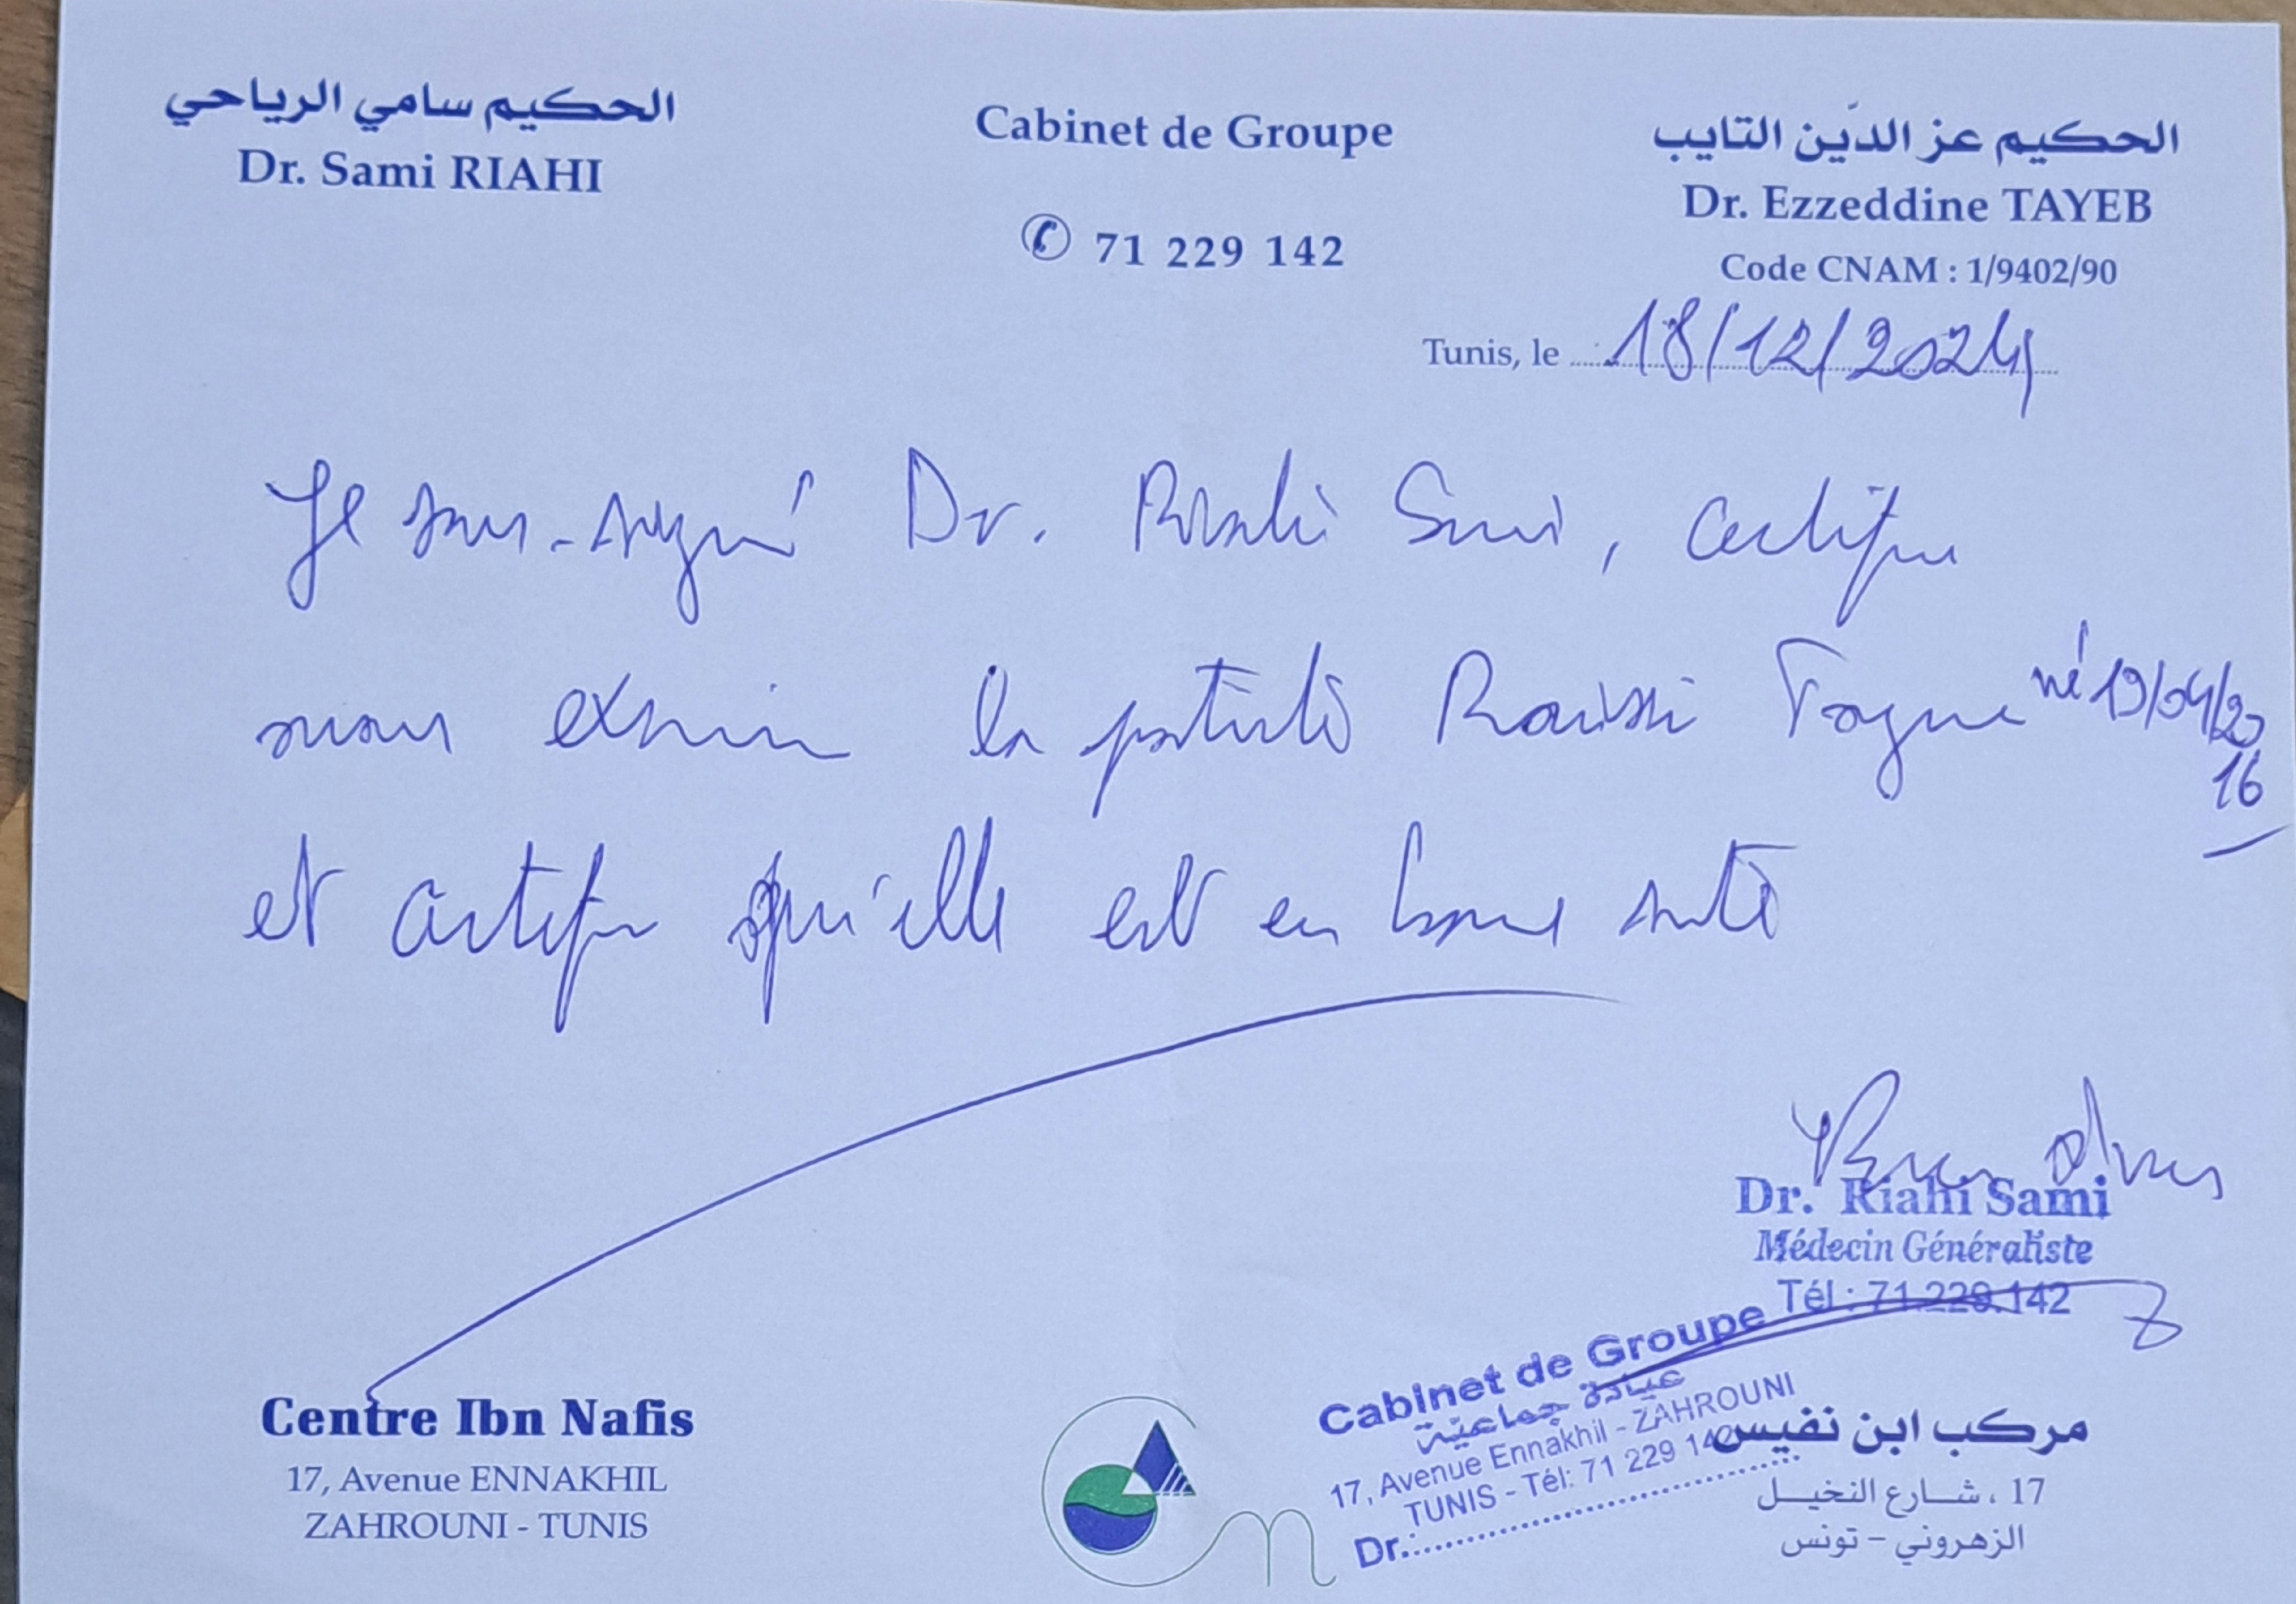 الحكيم سامي الرياحي
Dr. Sami RIAHI
Cabinet de Groupe
71 229 142
الحكيم عز الدّين التايب
Dr. Ezzeddine TAYEB
Code CNAM : 1/9402/90
Tunis, le 18/12/2024
Je sous-signé Dr. Riahi Sami, certifie
avoir examiné la patiente Raissi né 19/04/20
16
et certifie qu'elle est en bonne santé
Dr. Riahi Sami
Médecin Généraliste
Tél : 71.229.142
Cabinet de Groupe
عيادة جماعية
17, Avenue Ennakhil - ZAHROUNI
TUNIS - Tél: 71 229 142
Dr.:
Centre Ibn Nafis
17, Avenue ENNAKHIL
ZAHROUNI - TUNIS
مركب ابن نفيس
17 ، شارع النخيل
الزهروني - تونس